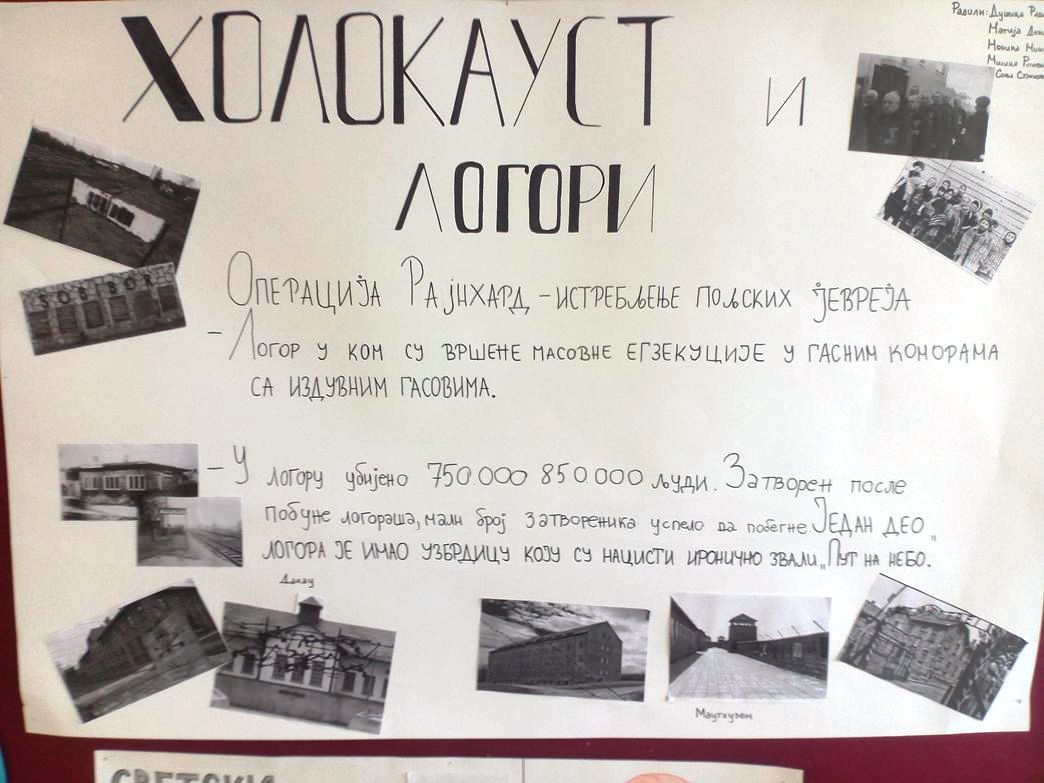 ХОЛОКАУСТ И
ЛОГОРИ
Радили: Душица
Матија
Моника
Соња
SOBIBOR
Операција Рајнхард - истребљење пољских Јевреја
- Логор у ком су вршене масовне егзекуције у гасним коморама
са издувним гасовима.
- У логору убијено 750.000 850.000 људи. Затворен после
побуне логораша, мали број затвореника успело да побегне. Један део
логора је имао узбрдицу коју су нацисти иронично звали „Пут на небо.“
Дахау
Маутхузен
СВЕТСКИ